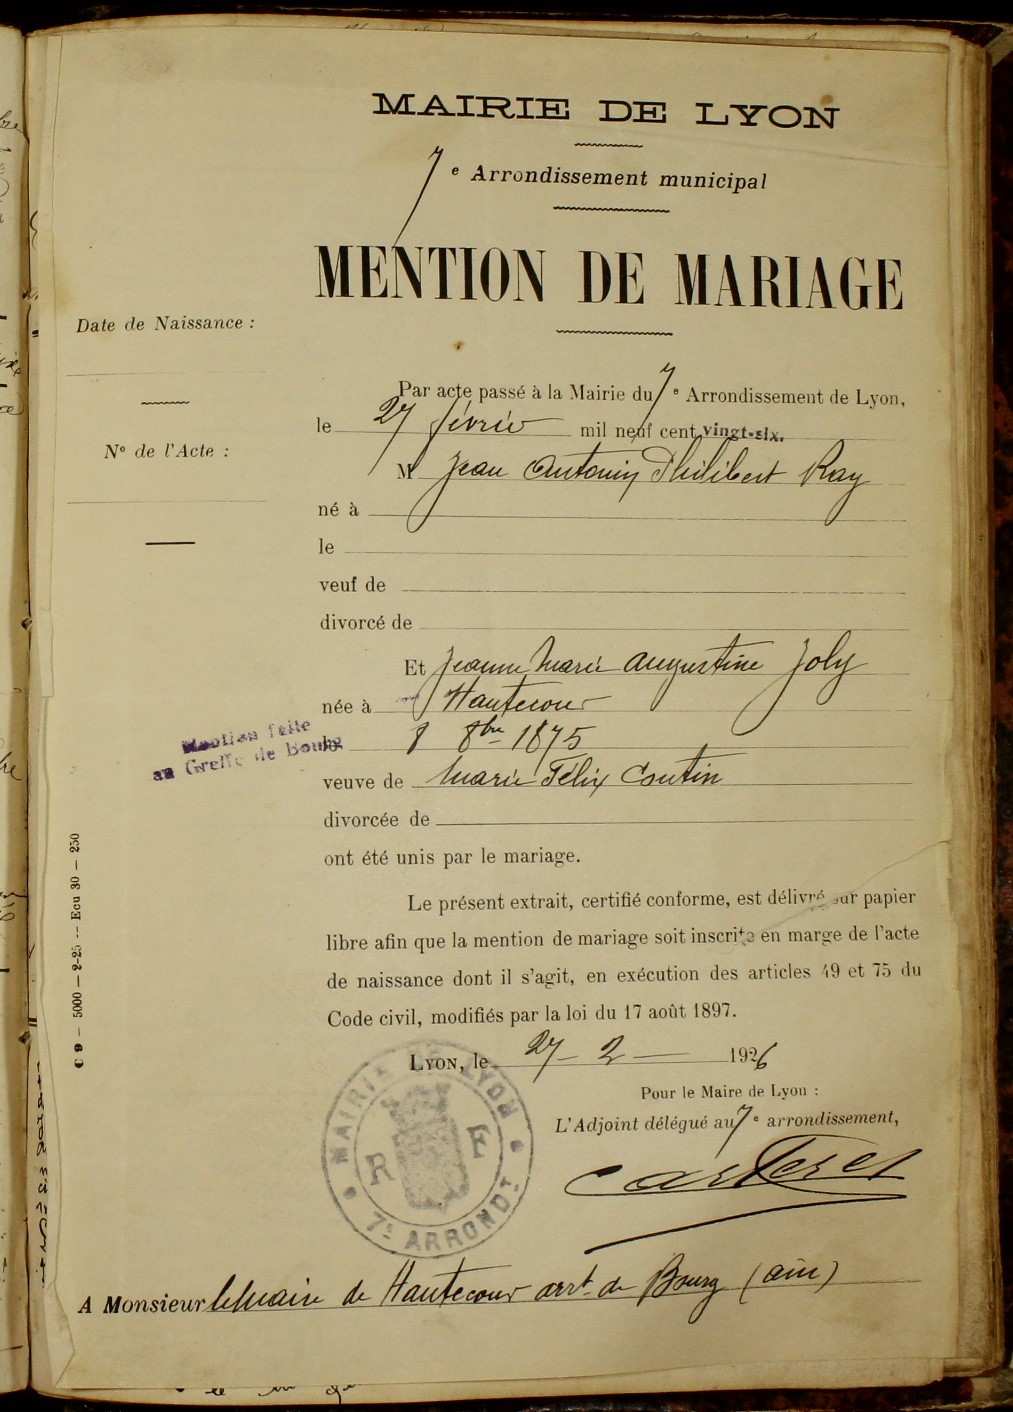 MAIRIE DE LYON
7e Arrondissement municipal
MENTION DE MARIAGE
Date de Naissance :
No de l'Acte :
Par acte passé à la Mairie du 7e Arrondissement de Lyon,
le 27 février mil neuf cent vingt-six.
M Jean Antonin Philibert Ray
né à
le
veuf de
divorcé de
Et Jeanne Marie Augustine Joly
née à Hautecour
8 8bre 1875
veuve de Marie Félix Coutin
divorcée de
ont été unis par le mariage.
Mention faite
au Greffe de Bourg
Le présent extrait, certifié conforme, est délivré sur papier
libre afin que la mention de mariage soit inscrite en marge de l'acte
de naissance dont il s'agit, en exécution des articles 49 et 75 du
Code civil, modifiés par la loi du 17 août 1897.
C 9 — 5000 — 2-25 — Ecu 30 — 250
LYON, le 27 - 2 - 1926
Pour le Maire de Lyon :
L'Adjoint délégué au 7e arrondissement,
MAIRIE DE LYON
R F
7e ARRONDT
A Monsieur le Maire de Hautecour arrt de Bourg (Ain)